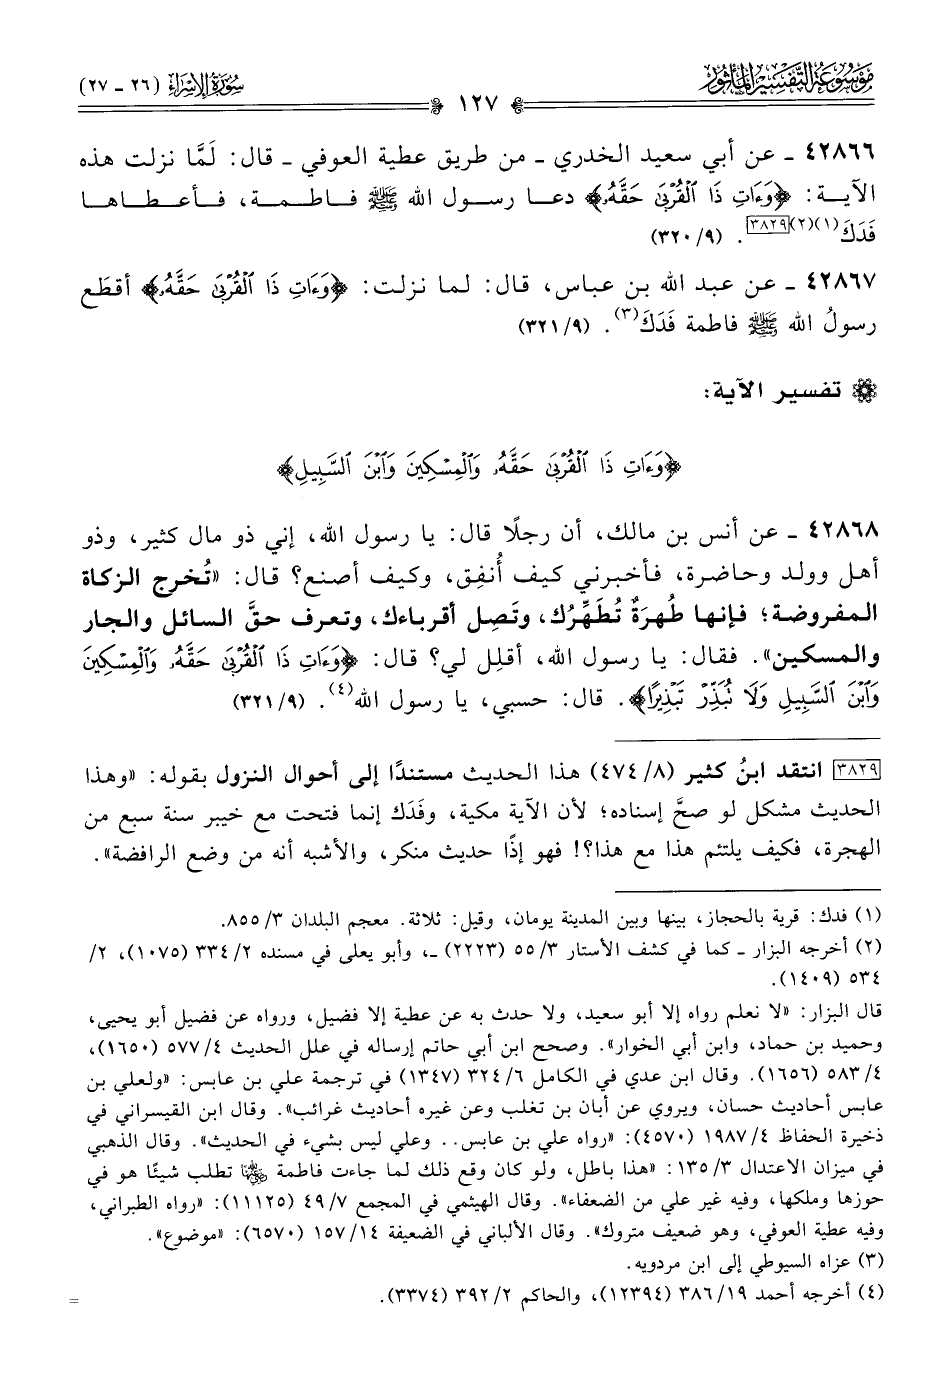 موسوعة التفسير المأثور
سورة الإسراء (٢٦ ـ ٢٧)
١٢٧
٤٢٨٦٦ ـ عن أبي سعيد الخدري ـ من طريق عطية العوفي ـ قال: لَمَّا نزلت هذه
الآية: ﴿وَءَاتِ ذَا ٱلْقُرْبَىٰ حَقَّهُۥ﴾ دعا رسول الله ﷺ فاطمة، فأعطاها
فَدَكَ(١)(٢)[٣٨٢٩]. (٩/ ٣٢٠)
٤٢٨٦٧ ـ عن عبد الله بن عباس، قال: لما نزلت: ﴿وَءَاتِ ذَا ٱلْقُرْبَىٰ حَقَّهُۥ﴾ أقطَع
رسولُ الله ﷺ فاطمة فَدَكَ(٣). (٩/ ٣٢١)
تفسير الآية:
﴿وَءَاتِ ذَا ٱلْقُرْبَىٰ حَقَّهُۥ وَٱلْمِسْكِينَ وَٱبْنَ ٱلسَّبِيلِ﴾
٤٢٨٦٨ ـ عن أنس بن مالك، أن رجلًا قال: يا رسول الله، إني ذو مال كثير، وذو
أهل وولد وحاضرة، فأخبرني كيف أُنفِق، وكيف أصنع؟ قال: «تُخرج الزكاة
المفروضة؛ فإنها طُهرَةٌ تُطَهِّرُك، وتَصِل أقرباءك، وتعرف حقَّ السائل والجار
والمسكين». فقال: يا رسول الله، أقلِل لي؟ قال: ﴿وَءَاتِ ذَا ٱلْقُرْبَىٰ حَقَّهُۥ وَٱلْمِسْكِينَ
وَٱبْنَ ٱلسَّبِيلِ وَلَا تُبَذِّرْ تَبْذِيرًا﴾. قال: حسبي، يا رسول الله(٤). (٩/ ٣٢١)
[٣٨٢٩] انتقد ابنُ كثير (٨/ ٤٧٤) هذا الحديث مستندًا إلى أحوال النزول بقوله: «وهذا
الحديث مشكل لو صحَّ إسناده؛ لأن الآية مكية، وفَدَك إنما فتحت مع خيبر سنة سبع من
الهجرة، فكيف يلتئم هذا مع هذا؟! فهو إذًا حديث منكر، والأشبه أنه من وضع الرافضة».
(١) فدك: قرية بالحجاز، بينها وبين المدينة يومان، وقيل: ثلاثة. معجم البلدان ٣/ ٨٥٥.
(٢) أخرجه البزار ـ كما في كشف الأستار ٣/ ٥٥ (٢٢٢٣) ـ، وأبو يعلى في مسنده ٢/ ٣٣٤ (١٠٧٥)، ٢/
٥٣٤ (١٤٠٩).
قال البزار: «لا نعلم رواه إلا أبو سعيد، ولا حدث به عن عطية إلا فضيل، ورواه عن فضيل أبو يحيى،
وحميد بن حماد، وابن أبي الخوار». وصحح ابن أبي حاتم إرساله في علل الحديث ٤/ ٥٧٧ (١٦٥٠)،
٤/ ٥٨٣ (١٦٥٦). وقال ابن عدي في الكامل ٦/ ٣٢٤ (١٣٤٧) في ترجمة علي بن عابس: «ولعلي بن
عابس أحاديث حسان، ويروي عن أبان بن تغلب وعن غيره أحاديث غرائب». وقال ابن القيسراني في
ذخيرة الحفاظ ٤/ ١٩٨٧ (٤٥٧٠): «رواه علي بن عابس.. وعلي ليس بشيء في الحديث». وقال الذهبي
في ميزان الاعتدال ٣/ ١٣٥: «هذا باطل، ولو كان وقع ذلك لما جاءت فاطمة تطلب شيئًا هو في
حوزها وملكها، وفيه غير علي من الضعفاء». وقال الهيثمي في المجمع ٧/ ٤٩ (١١١٢٥): «رواه الطبراني،
وفيه عطية العوفي، وهو ضعيف متروك». وقال الألباني في الضعيفة ١٤/ ١٥٧ (٦٥٧٠): «موضوع».
(٣) عزاه السيوطي إلى ابن مردويه.
(٤) أخرجه أحمد ١٩/ ٣٨٦ (١٢٣٩٤)، والحاكم ٢/ ٣٩٢ (٣٣٧٤).
=